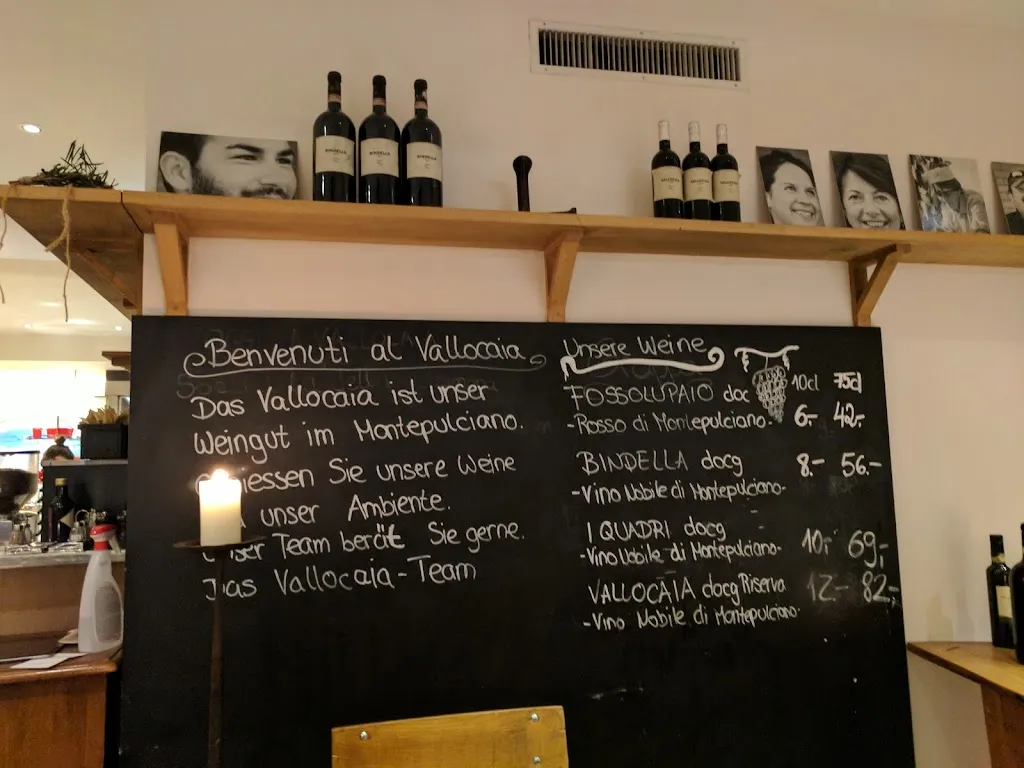 Benvenuti al Vallocaia
Das Vallocaia ist unser
Weingut im Montepulciano.
iessen Sie unsere Weine
unser Ambiente.
Unser Team berät Sie gerne.
Das Vallocaia-Team
Unsere Weine
10cl 75cl
FOSSOLUPAIO doc
-Rosso di Montepulciano- 6.- 42.-
BINDELLA docg 8.- 56.-
-Vino Nobile di Montepulciano-
I QUADRI docg
-Vino Nobile di Montepulciano- 10.- 69.-
VALLOCAIA docg Riserva 12.- 82.-
-Vino Nobile di Montepulciano-
BINDELLA
BINDELLA
BINDELLA